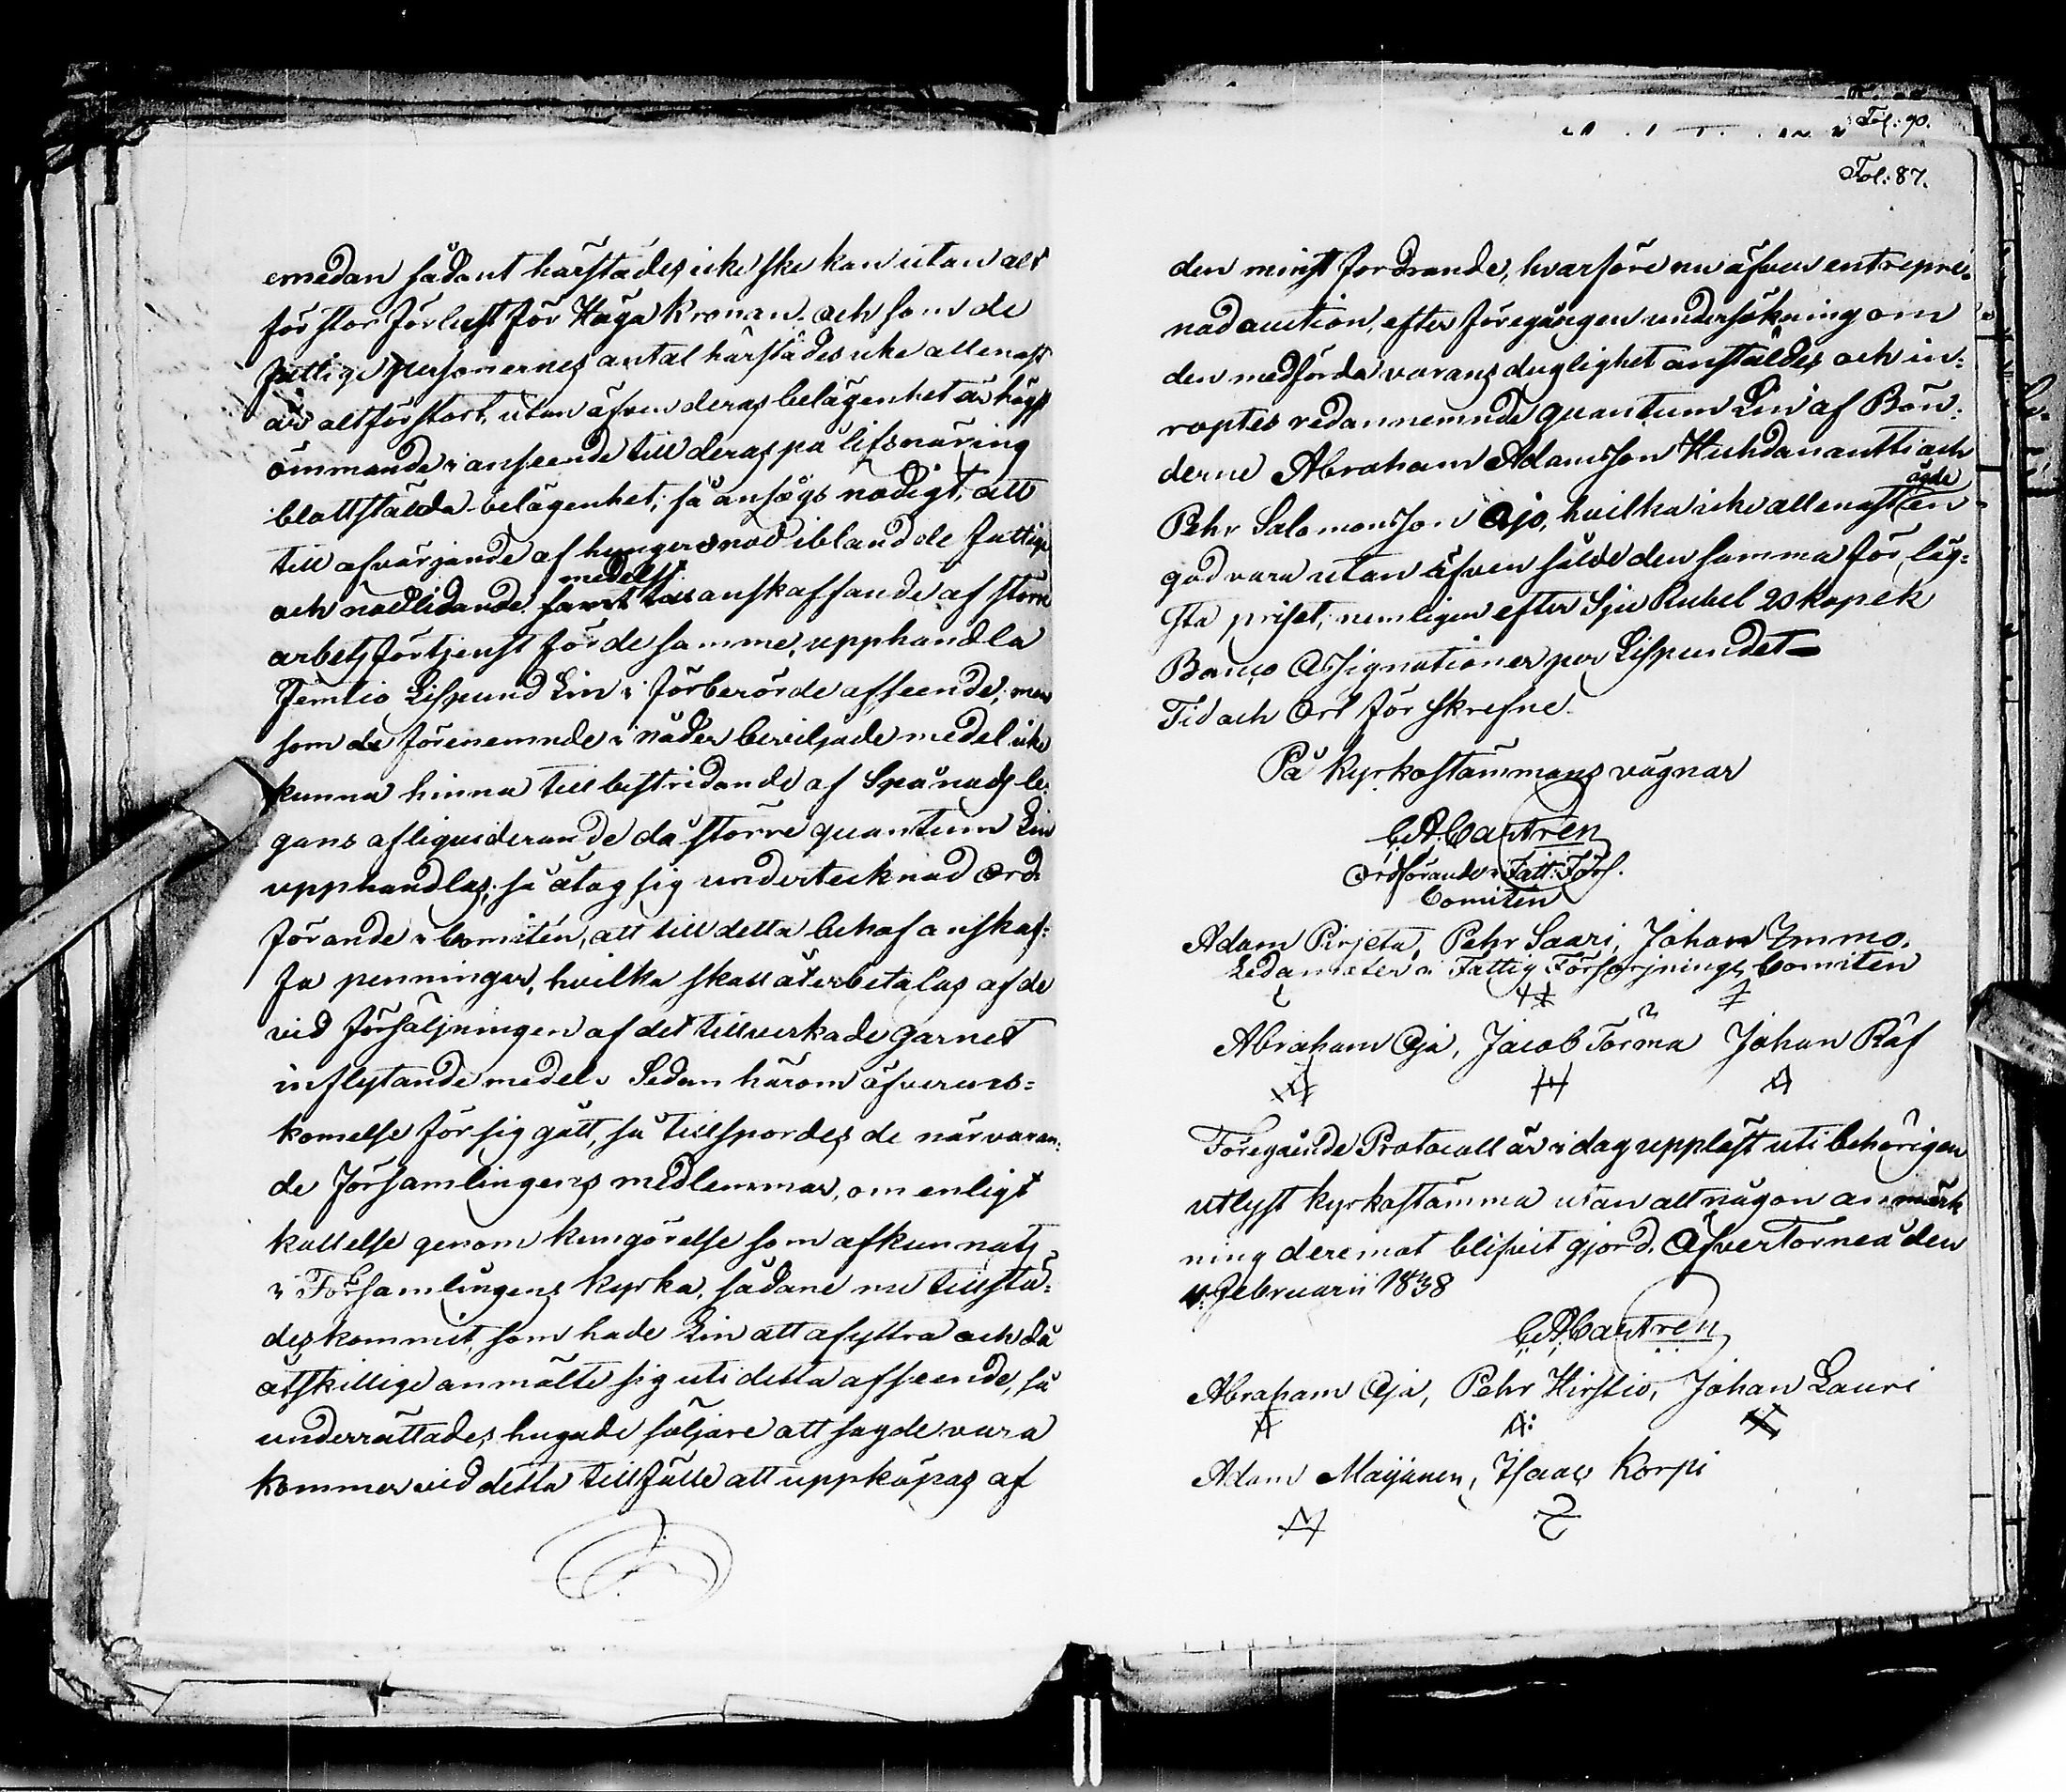 emedan sådant härstädes icke ske kan utan alt
för stor förlust för Höga Kronan och som de
fattige personernes antal härstädes icke allenast
är altför stort, utan äfven deras belägenhet är högst
ömmande i anseende till deras på lifsnäring
blottstälda belägenhet; så ansågs nödigt, att
till afvärjande af hungersnöd ibland de fattige
och nödlidande medelst anskaffande af större
arbetsförtjenst för de samme, upphandla
Femtio Lispund Lin i förberörde afseende; men
som de förenemnde i nåder beviljade medel icke
kunna hinna till bestridande af Spånads le-
gans afliquiderande då större quantum Lin
upphandlas; så åtog sig undertecknad Ord-
förande i Comitén, att till detta behof anskaf-
fa penningar, hvilka skall återbetalas af de
vid försäljningen af det tillverkade garnet
inflytande medel. Sedan härom öfverens-
komelse för sig gått, så tillspordes de närvaran-
de Församlingens medlemmar, om enligt
kallelse genom kungörelse som afkunnats
i Församlingens kyrka, sådane nu tillstä-
des kommit, som hade Lin att afyttra och då
åtskillige anmälte sig uti detta afseende, så
underrättades hugade säljare att sagde vara
kommer vid detta tillfälle att uppköpas af
Fol: 90.
Fol: 87.
den minst fordrande, hvarföre nu äfven entrepre-
nad auction, efter föregången undersökning om
den medförda varans duglighet anstäldes och in-
roptes redannemnde quantum Lin af Bön-
derne Abraham Adamsson Huhdanantti och
Pehr Salomonsson Ojo, hvilka icke allenast ägde en
god vara utan äfven sålde den samma för läg-
sta priset, nemligen efter Sju Rubel 20 kopek
Banco Assignationer per Lispundet
Tid och Ort förskrefne.
På Kyrkostämmans vägnar
C.A. Castrén
Ordförande i Fatt: Förs.
Comitén
Adam Pirjeta, Pehr Saari, Johan Immo.
Ledamöter i Fattig Försörjnings Comiten
Abraham Oja, Jacob Törmä Johan Räf
Föregående Protocoll är i dag uppläst uti behörigen
utlyst kyrkostämma utan att någon anmärk
ning deremot blifvit gjord. Öfver Torneå den
4: Februarii 1838
C.A. Castrén
Abraham Oja, Pehr Hirstio, Johan Lauri
Adam Maijanen, Isaac Korpi